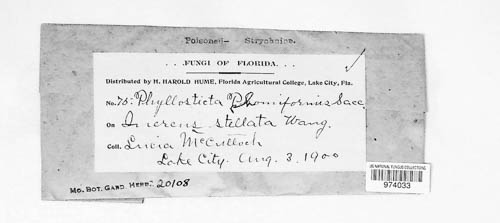 Poisoned- Strychnine.
. . FUNGI OF FLORIDA. . .
Distributed by H. HAROLD HUME, Florida Agricultural College, Lake City, Fla.
No. 75: Phyllosticta Phomiformis Sacc.
On Quercus stellata Wang.
Coll. Lucia McCulloch
Lake City. Aug. 3. 1900
Mo. Bot. Gard. Herb. 20108
US NATIONAL FUNGUS COLLECTIONS
974033